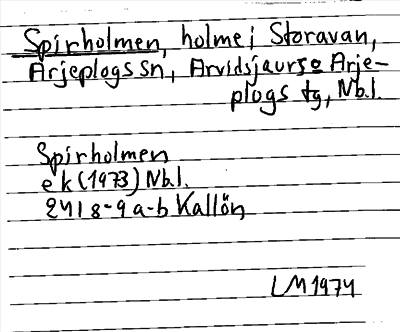 Spirholmen, holme i Storavan,
Arjeplogs sn, Arvidsjaurs o Arje-
plogs tg, Nb.l.
Spirholmen
ek (1973) Nb.l.
24I 8-9 a-b Kallön
LM 1974